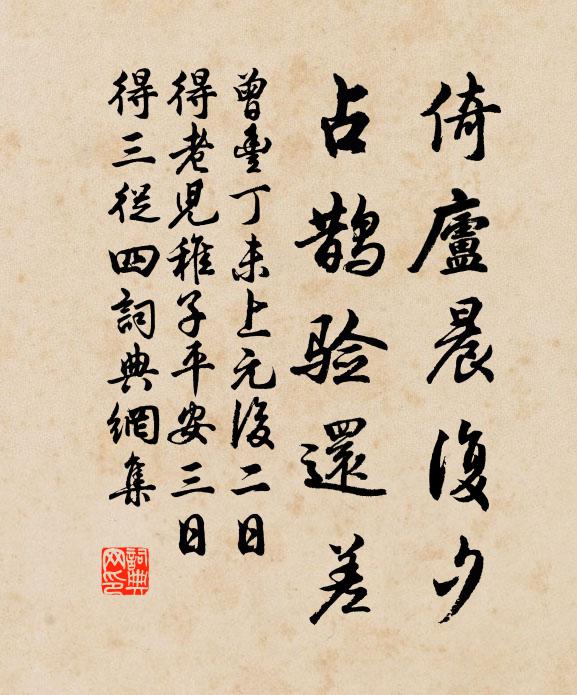 倚廬晨復夕
占鹊验還差
曾豐丁未上元後二日
得老兒稚子平安三日
得三從四詞典網集
詞典网印